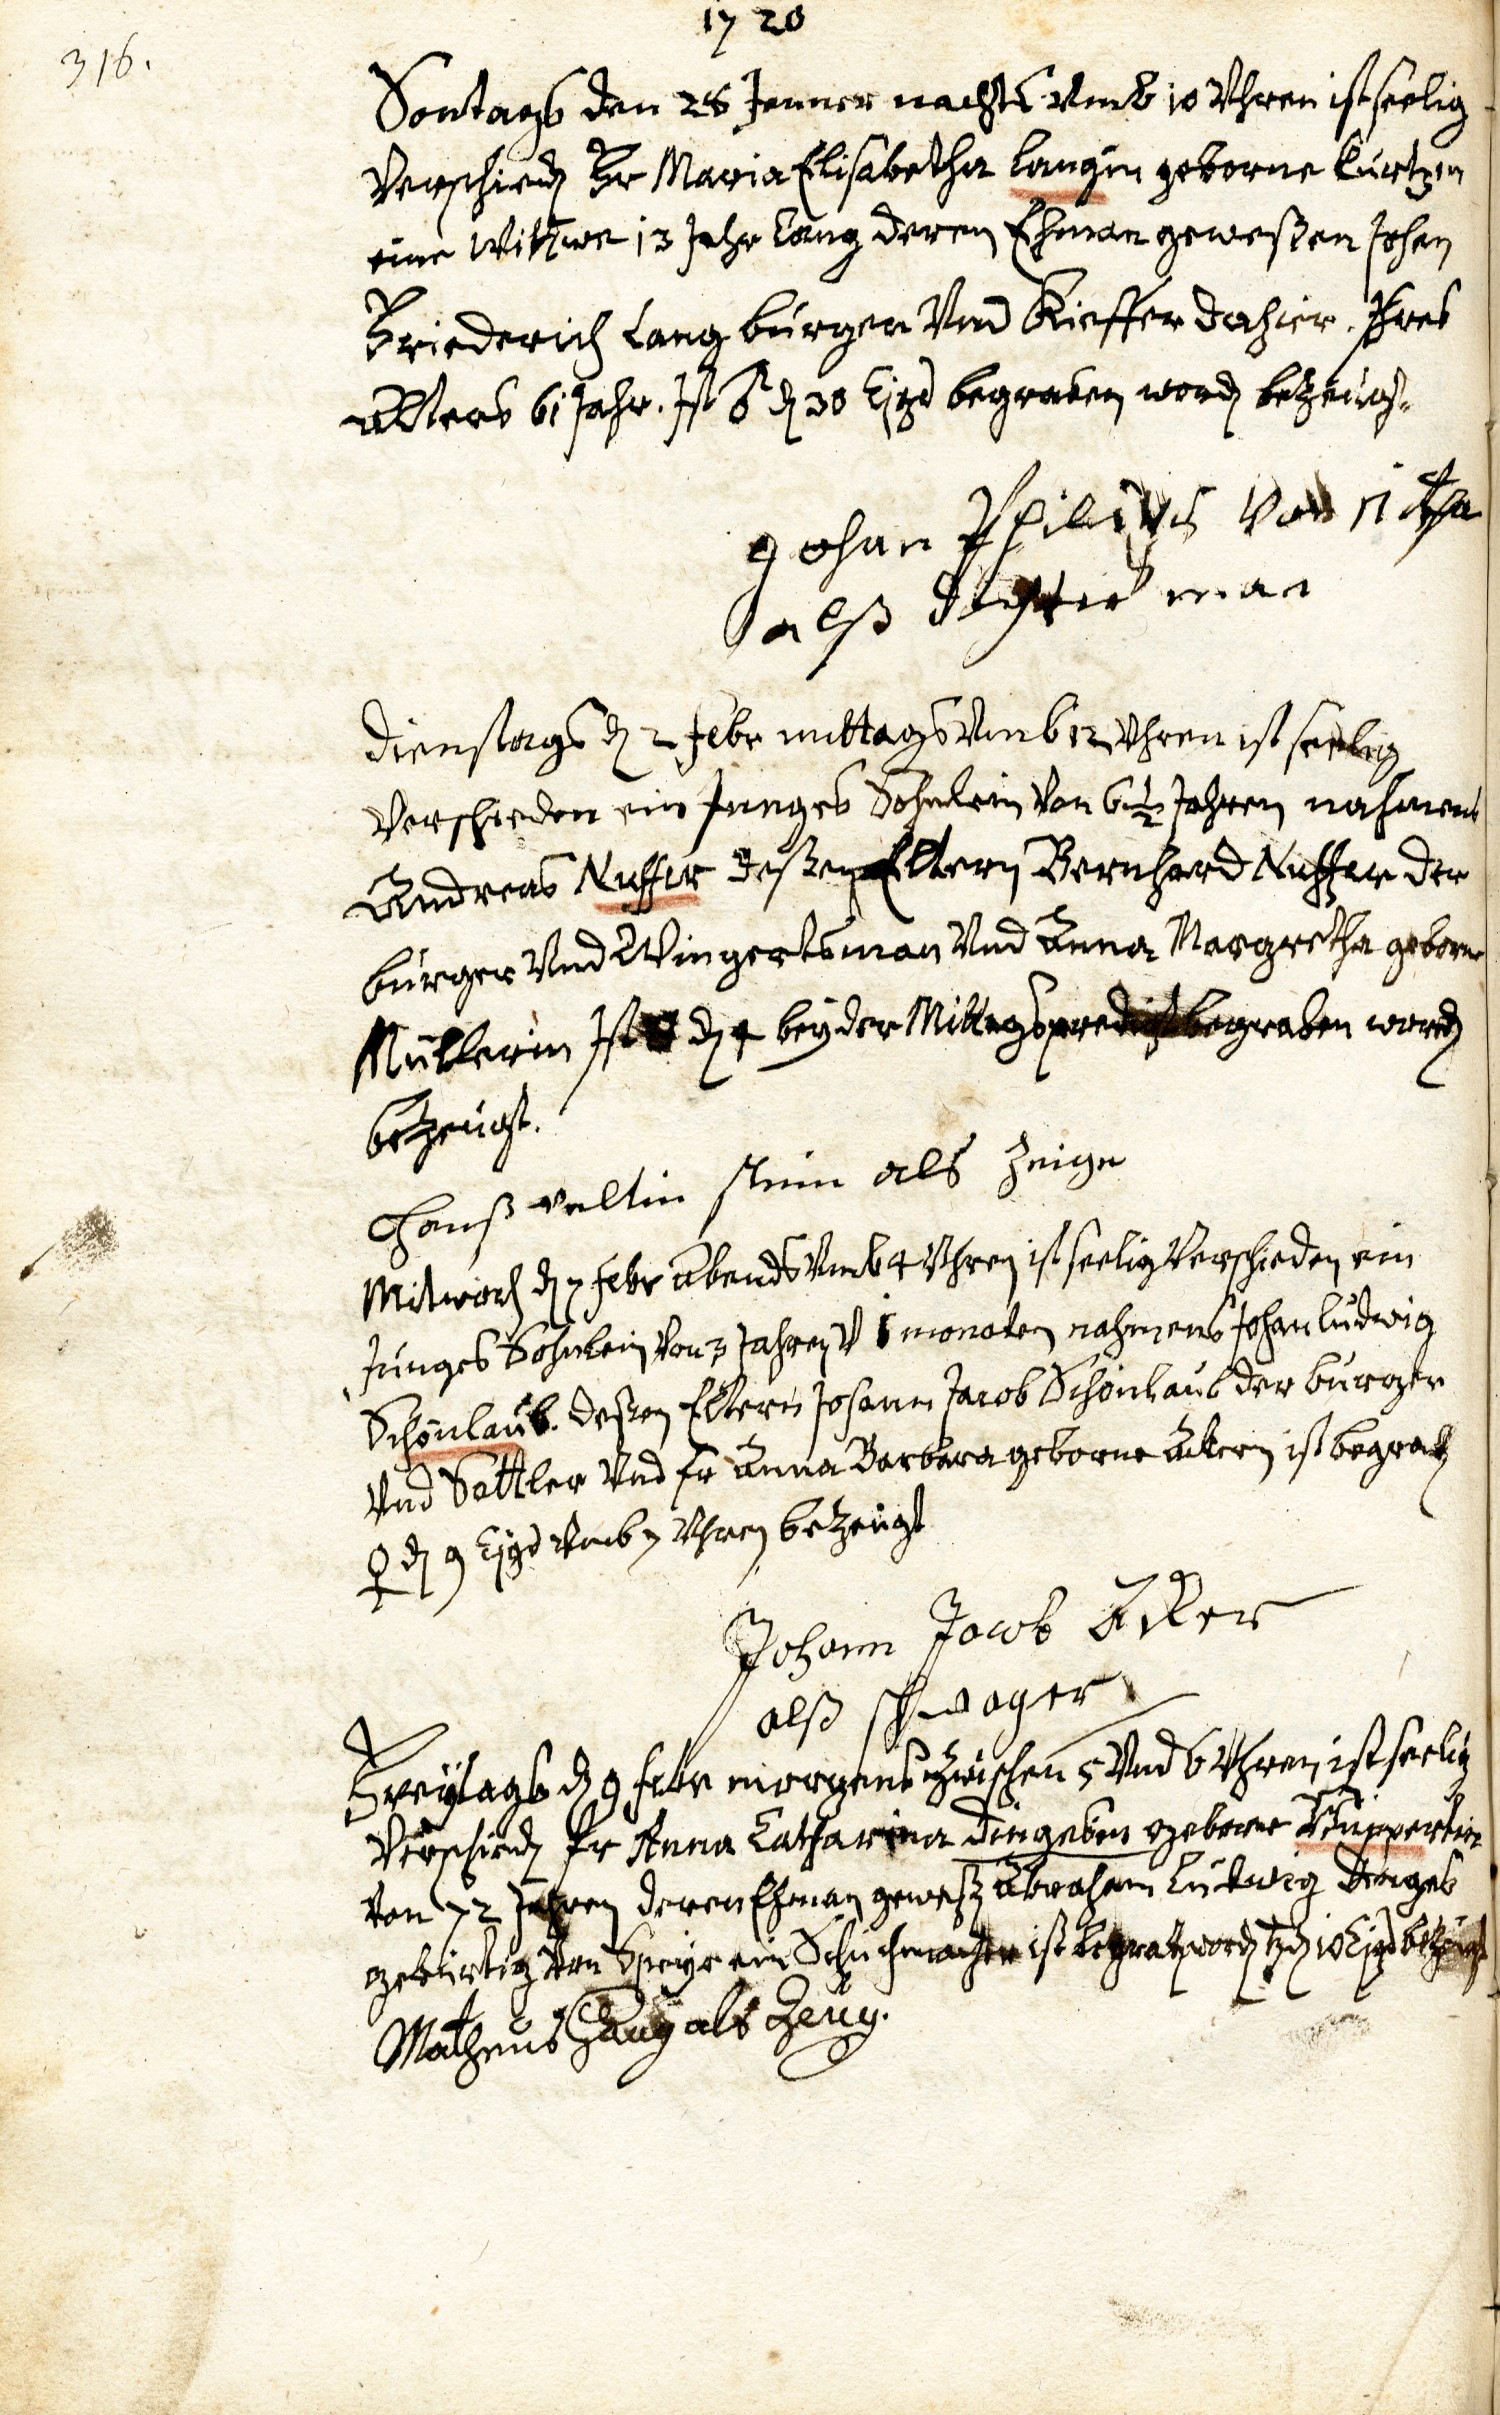 1720
316.
Sontags den 28 Jenner nachts Vmb 10 Vhren ist seelig
Verschied Fr Maria Elisabetha Langin geborne Curtzin
eine Wittwe 13 Jahr Lang deren Ehman geweßen Johan
Friederich Lang burger Vnd Kieffer dahier. Ihres
alters 61 Jahr. Ist ♂ d 30 Ejsd begraben word bezeugt.
Johan Philips Von
alß
Dienstags d 2 Febr mittags Vmb 12 Vhren ist seelig
Verschieden ein Junges Sohnlein Von 6 1/2 Jahren nahmens
Andreas Nuffer deßen Eltern Bernhard Nuffer der
burger Vnd Wingertsman Vnd Anna Margretha geborne
Müllerin Ist d 4 bey der Mittagspredigt begraben word
bezeugt.
Hanß veltin stein als Zeige
Mitwoch d 7 Febr Abends Vmb 4 Vhren ist seelig Verschieden ein
Junges Sohnlein Von 3 Jahren V 1 monaten nahmens Johan Ludwig
Schönlaub. deßen Eltern Johann Jacob Schönlaub der burger
Vnd Sattler Vnd Fr Anna Barbara geborne Ackern ist begrab
♀ d 9 Ejsd Vmb 7 Vhren bezeugt
Johann Jacob Acker
alß schwager
Freytags d 9 Febr morgens zwischen 5 Vnd 6 Vhren ist seelig
Verschied Fr Anna Catharina Dingeben geborne Ruppertin
Von 72 Jahren deren Ehman geweß Abraham Ludwig Dingeb
gebürtig Von Speyr ein Schuchmacher ist begrab word d 10 Ejsd bezeugt
Matheus Haug als Zeug.